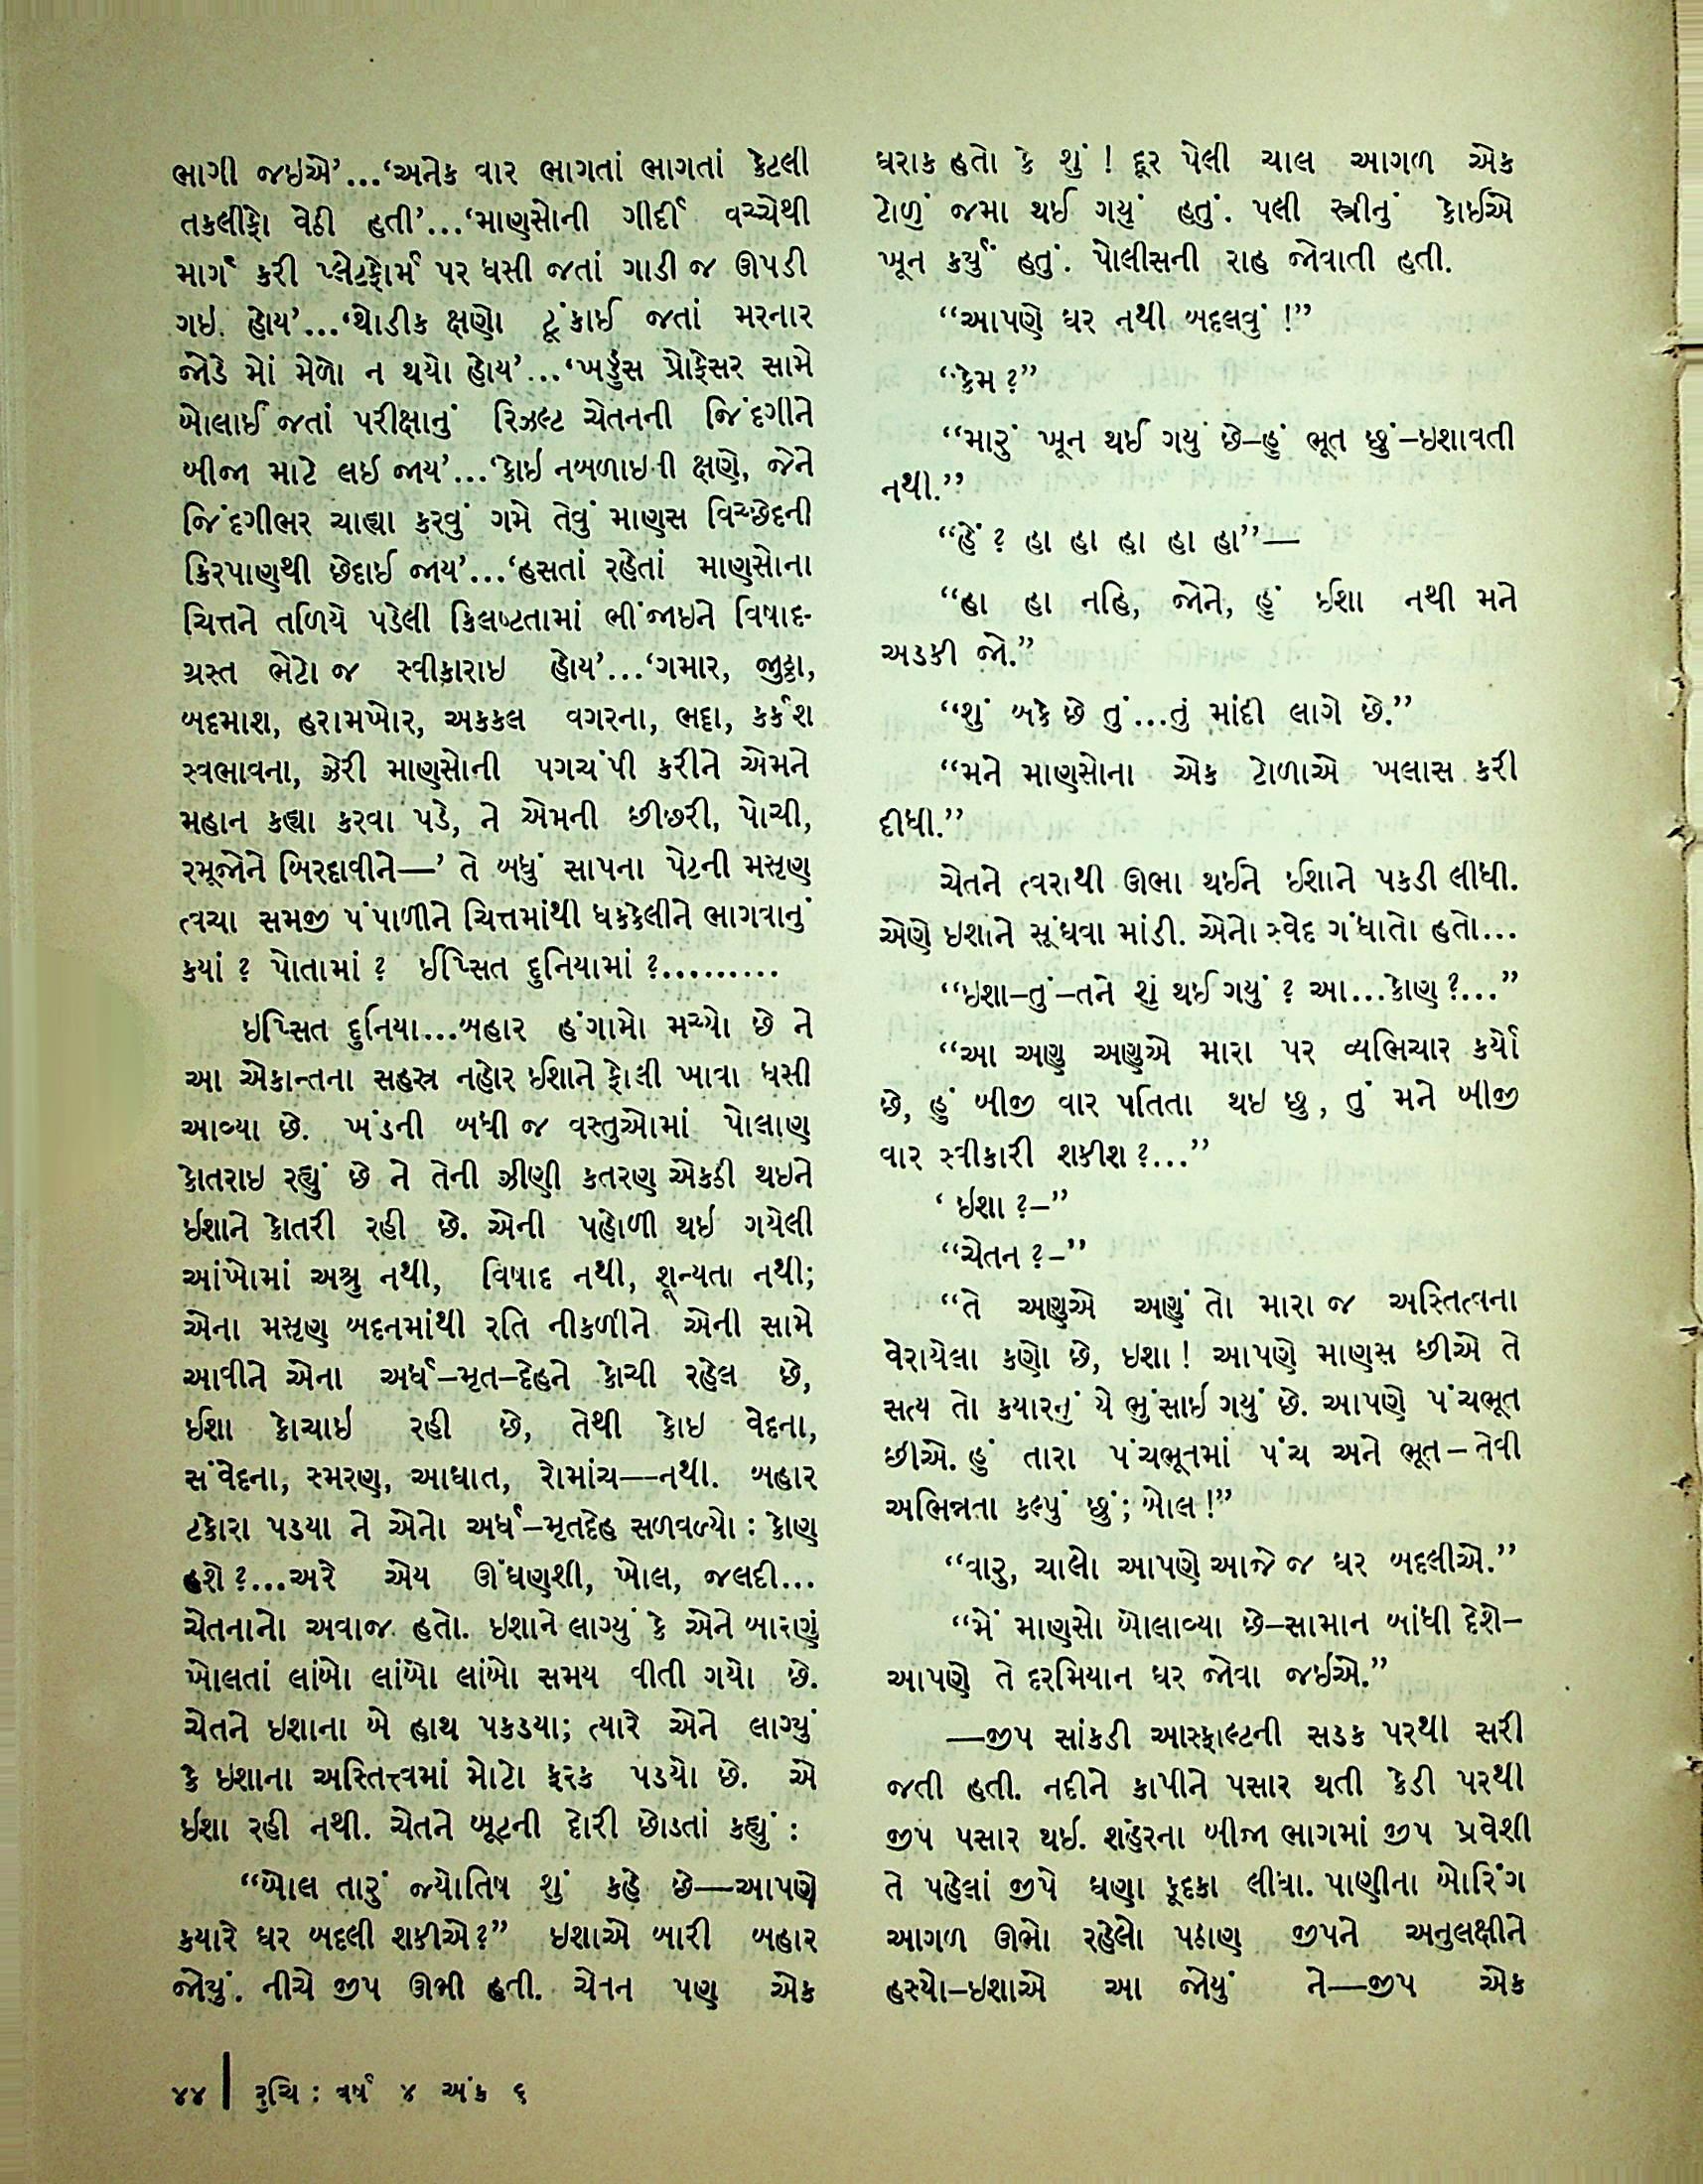 ભાગી જઇએ’...‘અનેક વાર ભાગતાં ભાગતાં કેટલી
તકલીફો વેઠી હતી’...‘માણસોની ગીર્દી વચ્ચેથી
માર્ગ કરી પ્લેટફોર્મ પર ધસી જતાં ગાડી જ ઊપડી
ગઇ હોય’...‘થોડીક ક્ષણો ટૂંકાઈ જતાં મરનાર
જોડે મોં મેળો ન થયો હોય’...‘ખડ્ડુસ પ્રોફેસર સામે
બોલાઈ જતાં પરીક્ષાનું રિઝલ્ટ ચેતનની જિંદગીને
બીજા માટે લઇ જાય’...‘કોઇ નબળાઇની ક્ષણે, જેને
જિંદગીભર ચાહ્યા કરવું ગમે તેવું માણસ વિચ્છેદની
કિરપાણથી છેદાઇ જાય’...‘હસતાં રહેતાં માણસોના
ચિત્તને તળિયે પડેલી ક્લિષ્ટતામાં ભીંજાઇને વિષાદ-
ગ્રસ્ત ભેટો જ સ્વીકારાઇ હોય’...‘ગમાર, જુઠ્ઠા,
બદમાશ, હરામખોર, અકકલ વગરના, ભદ્દા, કર્કશ
સ્વભાવના, ઝેરી માણસોની પગચંપી કરીને એમને
મહાન કહ્યા કરવા પડે, ને એમની છીછરી, પોચી,
રમૂજોને બિરદાવીને—’ તે બધું સાપના પેટની મસૃણ
ત્વચા સમજી પંપાળીને ચિત્તમાંથી ધકકેલીને ભાગવાનું
કયાં ? પોતામાં ? ઈપ્સિત દુનિયામાં ?.........
ઇપ્સિત દુનિયા...બહાર હંગામો મચ્યો છે ને
આ એકાન્તના સહસ્ર નહોર ઈશાને ફોલી ખાવા ધસી
આવ્યા છે. ખંડની બધી જ વસ્તુઓમાં પોલાણ
કોતરાઇ રહ્યું છે ને તેની ઝીણી કતરણ એકઠી થઇને
ઈશાને કોતરી રહી છે. એની પહોળી થઇ ગયેલી
આંખોમાં અશ્રુ નથી, વિષાદ નથી, શૂન્યતા નથી;
એના મસૃણ બદનમાંથી રતિ નીકળીને એની સામે
આવીને એના અર્ધ-મૃત-દેહને કોચી રહેલ છે,
ઈશા કોચાઇ રહી છે, તેથી કોઇ વેદના,
સંવેદના, સ્મરણ, આઘાત, રોમાંચ—નથી. બહાર
ટકોરા પડયા ને એનો અર્ધ-મૃતદેહ સળવળ્યો : કોણ
હશે ?...અરે એય ઊંઘણશી, ખોલ, જલદી...
ચેતનાનો અવાજ હતો. ઇશાને લાગ્યું કે એને બારણું
ખોલતાં લાંબો લાંબો લાંબો સમય વીતી ગયો છે.
ચેતને ઇશાના બે હાથ પકડયા; ત્યારે એને લાગ્યું
કે ઇશાના અસ્તિત્ત્વમાં મોટો ફરક પડયો છે. એ
ઈશા રહી નથી. ચેતને બૂટની દોરી છોડતાં કહ્યું :
“બોલ તારું જ્યોતિષ શું કહે છે—આપણે
કયારે ઘર બદલી શકીએ?” ઇશાએ બારી બહાર
જોયું. નીચે જીપ ઊભી હતી. ચેતન પણ એક
ઘરાક હતો કે શું ! દૂર પેલી ચાલ આગળ એક
ટોળું જમા થઈ ગયું હતું. પલી સ્ત્રીનું કોઇએ
ખૂન કર્યું હતું. પોલીસની રાહ જોવાતી હતી.
“આપણે ઘર નથી બદલવું !”
“કેમ ?”
“મારું ખૂન થઈ ગયું છે-હું ભૂત છું-ઇશાવતી
નથી.”
“હેં ? હા હા હા હા હા”—
“હા હા નહિ, જોને, હું ઈશા નથી મને
અડકી જો.”
“શું બકે છે તું...તું માંદી લાગે છે.”
“મને માણસોના એક ટોળાએ ખલાસ કરી
દીધી.”
ચેતને ત્વરાથી ઊભા થઈને ઈશાને પકડી લીધી.
એણે ઇશાને સૂંઘવા માંડી. એનો સ્વેદ ગંધાતો હતો...
“ઇશા-તું-તને શું થઈ ગયું ? આ...કોણ ?...”
“આ અણુ અણુએ મારા પર વ્યભિચાર કર્યો
છે, હું બીજી વાર પતિતા થઇ છુ, તું મને બીજી
વાર સ્વીકારી શકીશ ?...”
‘ ઇશા ?-”
“ચેતન ?-”
“તે અણુએ અણું તો મારા જ અસ્તિત્વના
વેરાયેલા કણો છે, ઇશા ! આપણે માણસ છીએ તે
સત્ય તો કયારનું યે ભુંસાઈ ગયું છે. આપણે પંચભૂત
છીએ. હું તારા પંચભૂતમાં પંચ અને ભૂત-તેવી
અભિન્નતા કલ્પું છું; બોલ !”
“વારુ, ચાલો આપણે આજે જ ઘર બદલીએ.”
“મેં માણસો બોલાવ્યા છે-સામાન બાંધી દેશે-
આપણે તે દરમિયાન ઘર જોવા જઇએ.”
—જીપ સાંકડી આસ્ફાલ્ટની સડક પરથી સરી
જતી હતી. નદીને કાપીને પસાર થતી કેડી પરથી
જીપ પસાર થઇ. શહેરના બીજા ભાગમાં જીપ પ્રવેશી
તે પહેલાં જીપે ઘણા કૂદકા લીધા. પાણીના બોરિંગ
આગળ ઊભો રહેલો પઠાણ જીપને અનુલક્ષીને
હસ્યો-ઇશાએ આ જોયું ને—જીપ એક
૪૪ | રુચિ : વર્ષ ૪ અંક ૬